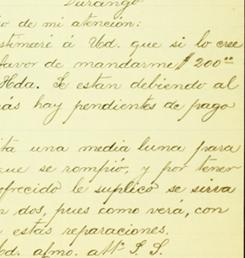 Durango
o de mi atención:
stimaré á Ud. que si lo cree
favor de mandarme $200⁰⁰
Hda. Se estan debiendo al
más hay pendientes de pago
ita una media luna para
que se rompió, y por tener
ofrecido le suplico se sirva
n dos, pues como verá, con
estas reparaciones.
Ud. afmo. attº S. S.